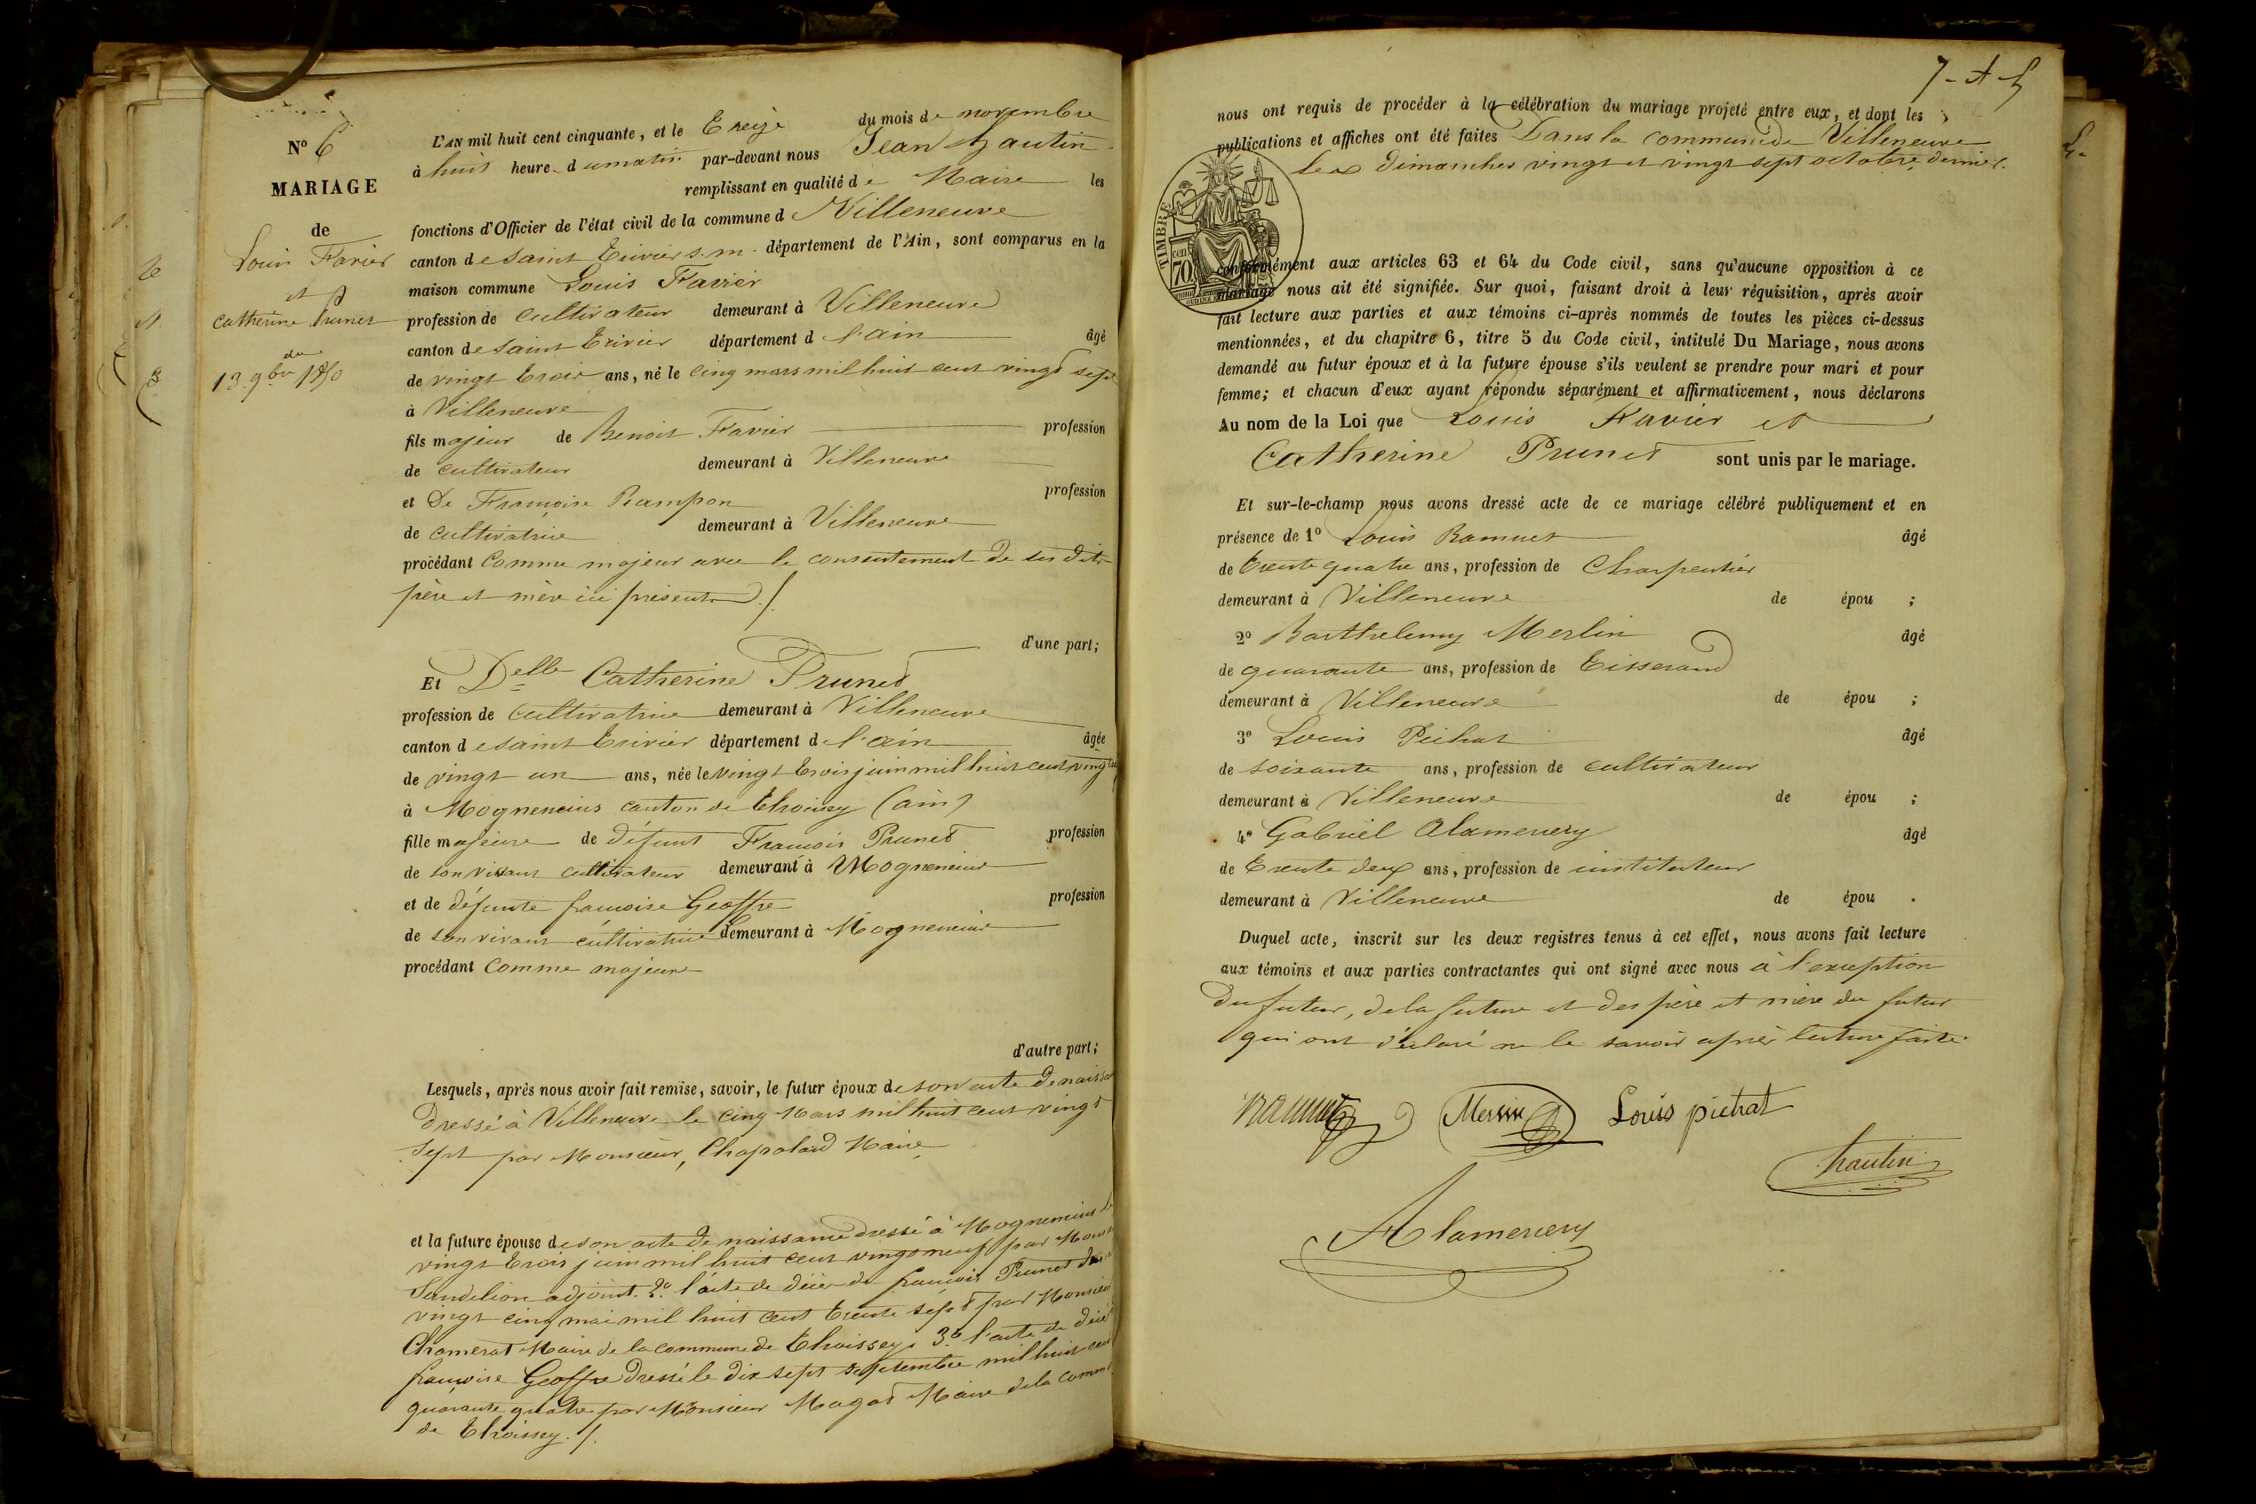 N° 6
MARIAGE
de
Louis Favier
et
Catherine Prunet
du
13 9bre 1850
L'AN mil huit cent cinquante, et le treize du mois de novembre
à huit heure du matin par-devant nous Jean hautin
remplissant en qualité de Maire les
fonctions d'Officier de l'état civil de la commune d Villeneuve
canton de saint Trivier s. m. département de l'Ain, sont comparus en la
maison commune Louis Favier
profession de cultivateur demeurant à Villeneuve
canton de saint Trivier département d l'ain âgé
de vingt trois ans, né le cinq mars mil huit cent vingt sept
à Villeneuve
fils majeur de Benoit Favier profession
de cultivateur demeurant à Villeneuve
et De Françoise Rampon profession
de cultivatrice demeurant à Villeneuve
procédant comme majeur avec le consentement de ses dits
père et mère ici présents ./.
d'une part;
Et Delle Catherine Prunet
profession de cultivatrice demeurant à Villeneuve
canton de saint Trivier département d l'ain âgée
de vingt un ans, née le vingt trois juin mil huit cent vingt
à Mogneneins canton de thoissey (ain)
fille majeure de défunt François Prunet profession
de son vivant cultivateur demeurant à Mogneneins
et de défunte françoise Geoffre profession
de son vivant cultivatrice demeurant à Mogneneins
procédant comme majeure
d'autre part;
Lesquels, après nous avoir fait remise, savoir, le futur époux de son acte de naissa
dressé à Villeneuve le cinq Mars mil huit cent vingt
sept par Monsieur, Chapolard Maire
et la future épouse de son acte de naissance dressé à Mogneneins le
vingt trois juin mil huit cent vingt neuf par Mons
adjoint. 2° l'acte de décès de françois Prunet
vingt cinq mai mil huit cent trente sept par Monsieur
Chamerat Maire de la commune de thoissey. 3° l'acte de décès
françoise Geoffre dressé le dix sept septembre mil huit cent
quarante quatre par Monsieur Magat Maire de la comm
de thoissey ./.
nous ont requis de procéder à la célébration du mariage projeté entre eux, et dont les
publications et affiches ont été faites Dans la commune de Villeneuve
les dimanches vingt et vingt sept octobre dernier.
TIMBRE
70
conformément aux articles 63 et 64 du Code civil, sans qu'aucune opposition à ce
mariage nous ait été signifiée. Sur quoi, faisant droit à leur réquisition, après avoir
fait lecture aux parties et aux témoins ci-après nommés de toutes les pièces ci-dessus
mentionnées, et du chapitre 6, titre 5 du Code civil, intitulé Du Mariage, nous avons
demandé au futur époux et à la future épouse s'ils veulent se prendre pour mari et pour
femme; et chacun d'eux ayant répondu séparément et affirmativement, nous déclarons
Au nom de la Loi que Louis Favier et
Catherine Prunet sont unis par le mariage.
Et sur-le-champ nous avons dressé acte de ce mariage célébré publiquement et en
présence de 1° Louis Ramuet âgé
de trente quatre ans, profession de Charpentier
demeurant à Villeneuve de épou ;
2° Barthelemy Merlin âgé
de quarante ans, profession de tisserand
demeurant à Villeneuve de épou ;
3° Louis Pichat âgé
de soixante ans, profession de cultivateur
demeurant à Villeneuve de épou ;
4° Gabriel Alamercery âgé
de trente deux ans, profession de instituteur
demeurant à Villeneuve de épou .
Duquel acte, inscrit sur les deux registres tenus à cet effet, nous avons fait lecture
aux témoins et aux parties contractantes qui ont signé avec nous à l'exception
du futur, de la future et des père et mère du futur
qui ont déclaré ne le savoir après lecture faite.
Ramuet Merlin Louis pichat
hautin
Alamercery